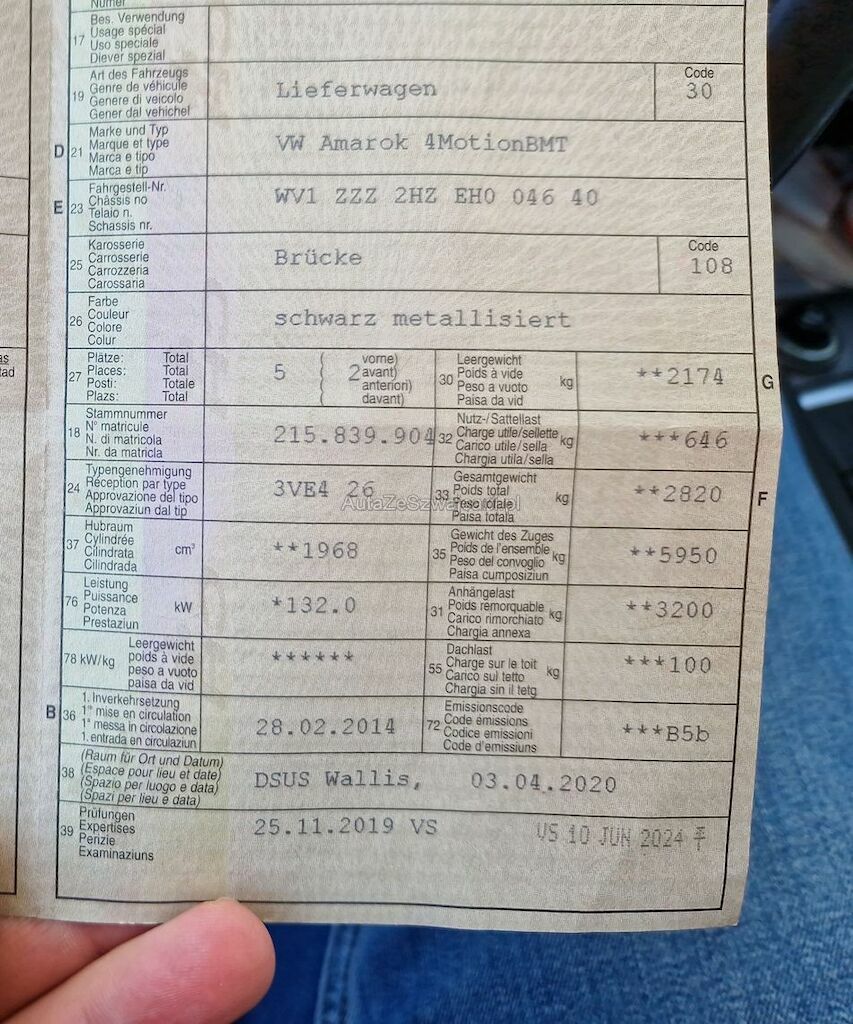 Numer
17
Bes. Verwendung
Usage spécial
Uso speciale
Diever spezial
19
Art des Fahrzeugs
Genre de véhicule
Genere di veicolo
Gener dal vehichel
Lieferwagen
Code
30
D
21
Marke und Typ
Marque et type
Marca e tipo
Marca e tip
VW Amarok 4MotionBMT
E
23
Fahrgestell-Nr.
Châssis no
Telaio n.
Schassis nr.
WV1 ZZZ 2HZ EH0 046 40
25
Karosserie
Carrosserie
Carrozzeria
Carossaria
Brücke
Code
108
26
Farbe
Couleur
Colore
Colur
schwarz metallisiert
27
Plätze: Total
Places: Total
Posti: Totale
Plazs: Total
5
( vorne)
( 2 avant)
( anteriori)
( davant)
30
Leergewicht
Poids à vide
Peso a vuoto
Paisa da vid
kg
**2174
G
18
Stammnummer
N° matricule
N. di matricola
Nr. da matricla
215.839.904
32
Nutz-/Sattellast
Charge utile/sellette
Carico utile/sella
Chargia utila/sella
kg
***646
24
Typengenehmigung
Réception par type
Approvazione del tipo
Approvaziun dal tip
3VE4 26
33
Gesamtgewicht
Poids total
Peso totale
Paisa totala
kg
**2820
F
37
Hubraum
Cylindrée
Cilindrata
Cilindrada
cm³
**1968
35
Gewicht des Zuges
Poids de l'ensemble
Peso del convoglio
Paisa cumposiziun
kg
**5950
76
Leistung
Puissance
Potenza
Prestaziun
kW
*132.0
31
Anhängelast
Poids remorquable
Carico rimorchiato
Chargia annexa
kg
**3200
78 kW/kg
Leergewicht
poids à vide
peso a vuoto
paisa da vid
******
55
Dachlast
Charge sur le toit
Carico sul tetto
Chargia sin il tetg
kg
***100
B
36
1. Inverkehrsetzung
1re mise en circulation
1a messa in circolazione
1. entrada en circulaziun
28.02.2014
72
Emissionscode
Code émissions
Codice emissioni
Code d'emissiuns
***B5b
38
(Raum für Ort und Datum)
(Espace pour lieu et date)
(Spazio per luogo e data)
(Spazi per lieu e data)
DSUS Wallis, 03.04.2020
39
Prüfungen
Expertises
Perizie
Examinaziuns
25.11.2019 VS
VS 10 JUN 2024